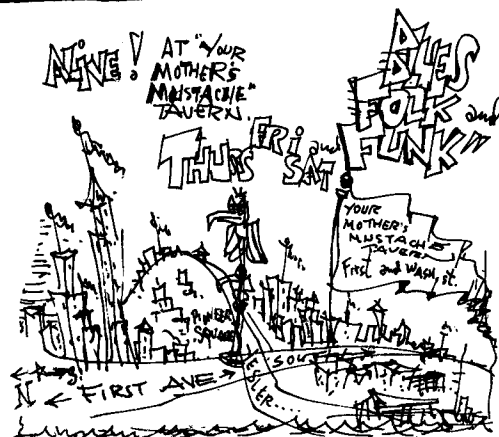 ALIVE!
AT "YOUR
MOTHER'S
MUSTACHE"
TAVERN.
THURS FRI and
SAT
BLUES
FOLK and
FUNK"
YOUR
MOTHER'S
MUSTACHE
TAVERN
FIRST and WASH St.
PIONEER
SQUARE
N ← FIRST AVE →
YESLER....